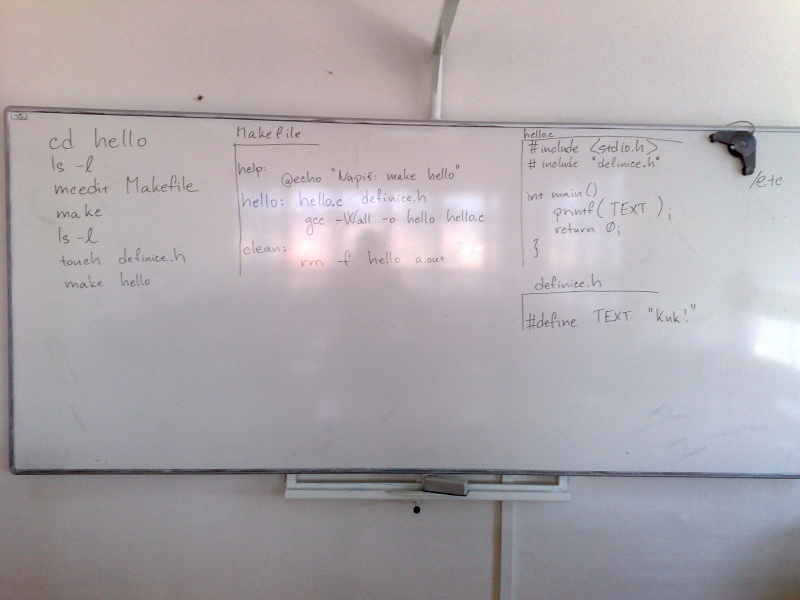 cd hello
ls -l
mcedit Makefile
make
ls -l
touch definice.h
make hello
Makefile
help:
@echo "Napiš: make hello"
hello: hello.c definice.h
gcc -Wall -o hello hello.c
clean:
rm -f hello a.out
hello.c
#include <stdio.h>
# include "definice.h"
int main()
printf( TEXT );
return 0;
}
definice.h
#define TEXT "Kuk!"
/etc